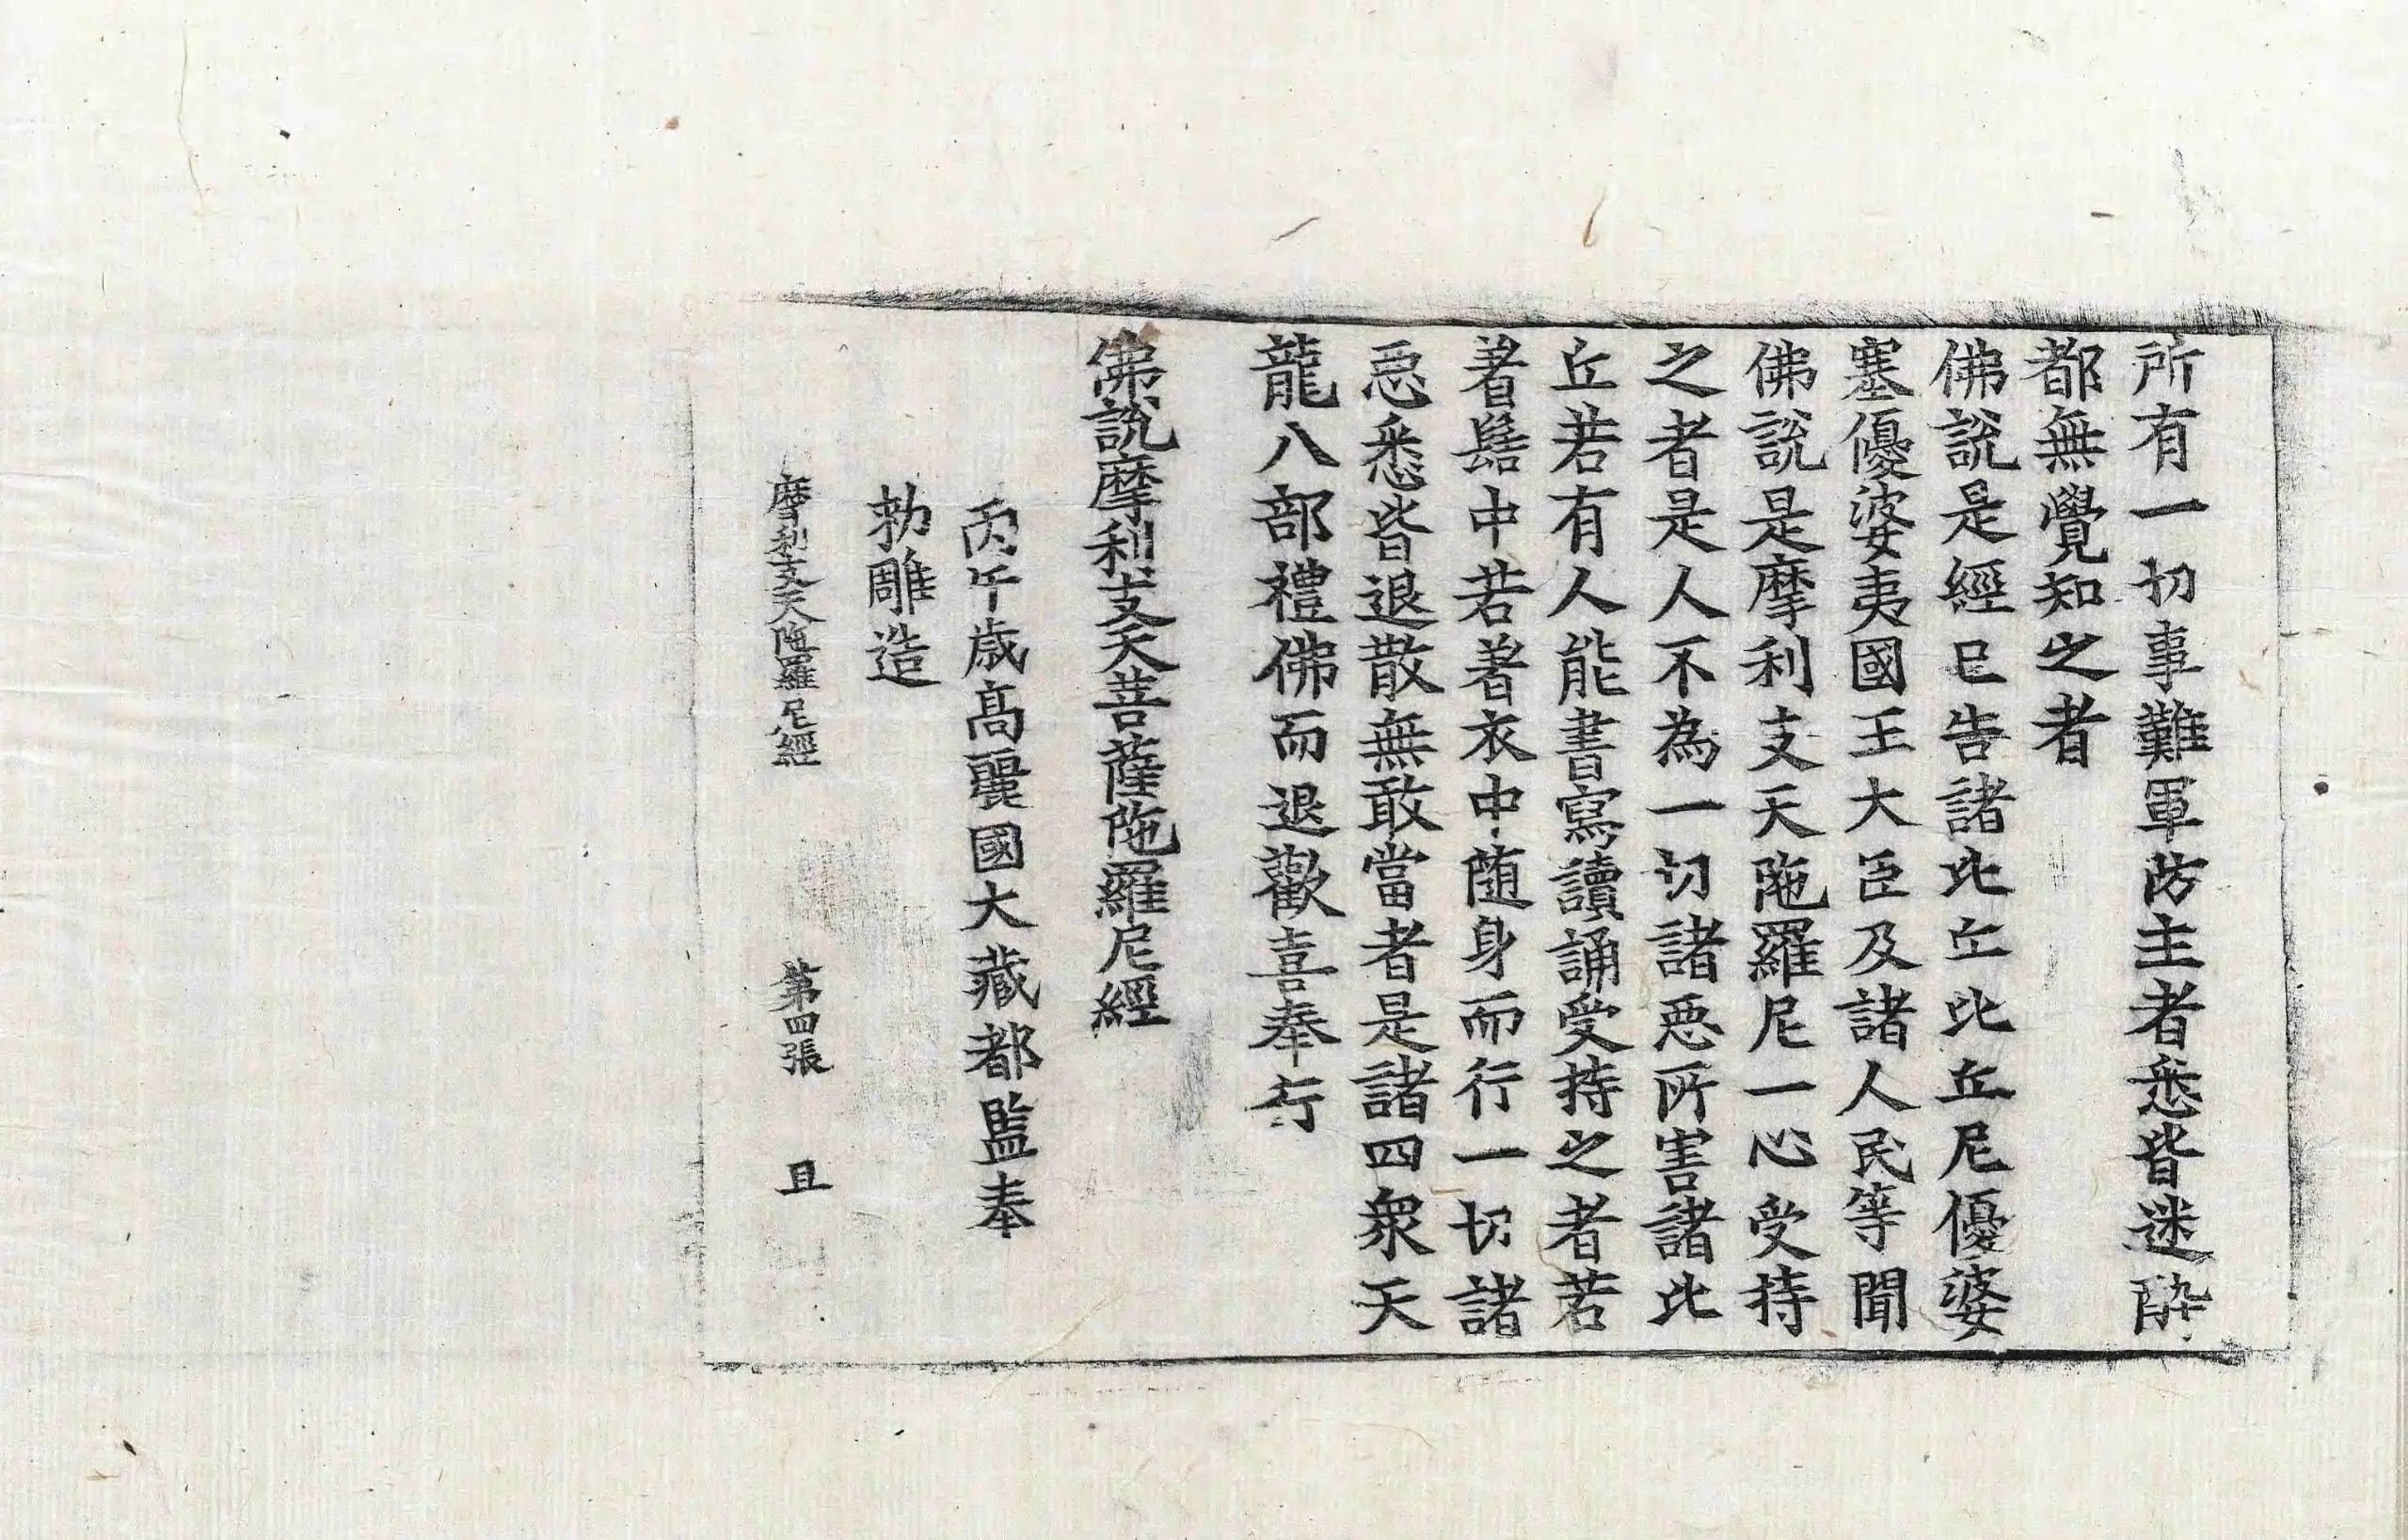 所有一切事難軍防主者悉皆迷醉
都無覺知之者
佛說是經已告諸比丘比丘尼優婆
塞優婆夷國王大臣及諸人民等聞
佛說是摩利支天陁羅尼一心受持
之者是人不為一切諸惡所害諸比
丘若有人能書寫讀誦受持之者若
著髻中若著衣中随身而行一切諸
惡悉皆退散無敢當者是諸四衆天
龍八部禮佛而退歡喜奉行
佛說摩利支天菩薩陁羅尼經
丙午歲高麗國大藏都監奉
勅雕造
摩利支天陁羅尼經 第四張 且